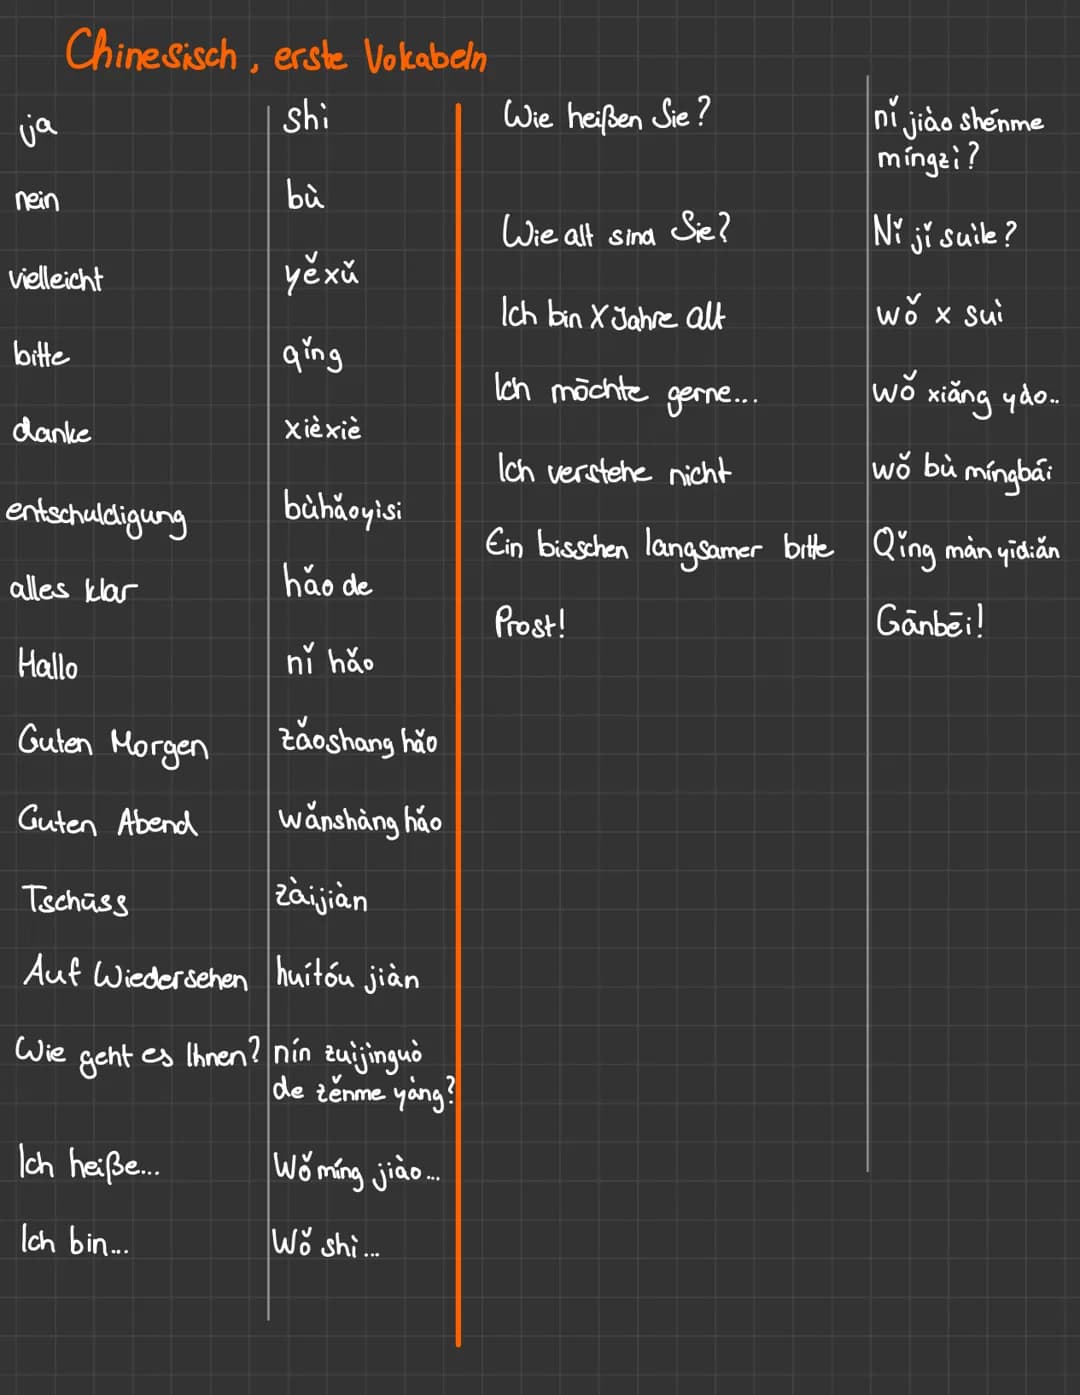 Chinesisch, erste Vokabeln
ja shi
nein bù
vielleicht yěxǔ
bitte qǐng
danke xièxiè
entschuldigung bùhǎoyìsi
alles klar hǎo de
Hallo nǐ hǎo
Guten Morgen zǎoshang hǎo
Guten Abend wǎnshàng hǎo
Tschüss zàijiàn
Auf Wiedersehen huítóu jiàn
Wie geht es Ihnen? nín zuìjìnguò
de zěnme yàng?
Ich heiße... Wǒ míng jiào...
Ich bin... Wǒ shì...
Wie heißen Sie? nǐ jiào shénme
míngzì?
Wie alt sind Sie? Nǐ jǐ suìle?
Ich bin X Jahre alt wǒ x suì
Ich möchte gerne... wǒ xiǎng yào..
Ich verstehe nicht wǒ bù míngbái
Ein bisschen langsamer bitte Qǐng màn yīdiǎn
Prost! Gānbēi!